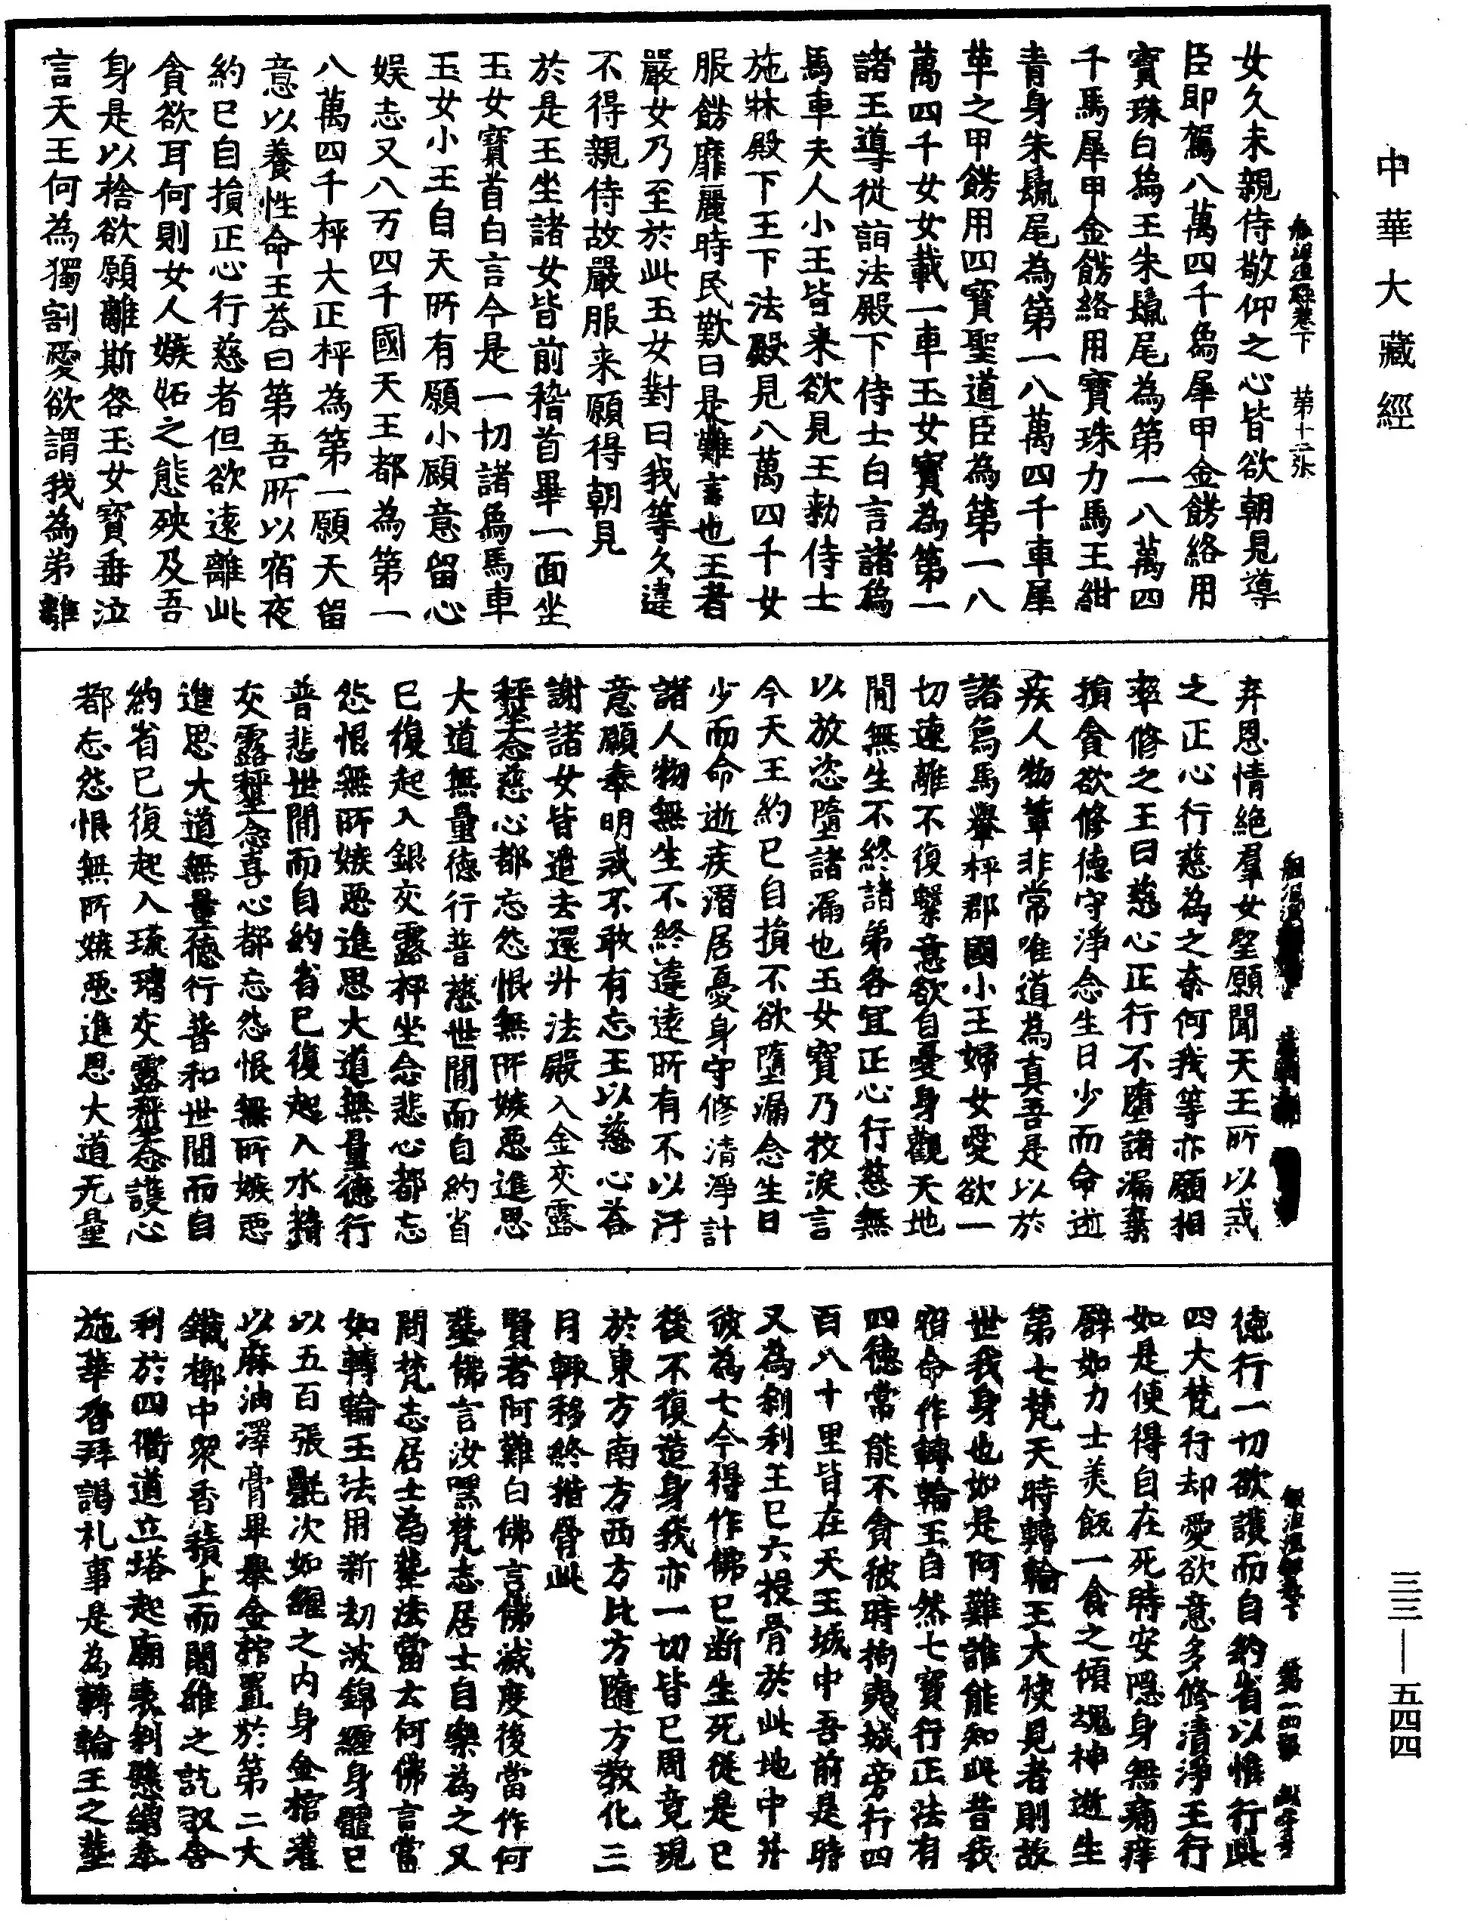 中華大藏經
女久未親侍敬仰之心皆欲朝見導
臣即駕八萬四千烏犀甲金餝絡用
寶珠白烏王朱髦尾為第一八萬四
千馬犀甲金餝絡用寶珠力馬王紺
青身朱髦尾為第一八萬四千車犀
革之甲餝用四寶聖道臣為第一八
萬四千女女載一車玉女寶為第一
諸王導從詣法殿下侍士白言諸烏
馬車夫人小王皆来欲見王勑侍士
施牀殿下王下法殿見八萬四千女
服餝靡麗時民歎曰是難言也王者
嚴女乃至於此玉女對曰我等久違
不得親侍故嚴服来願得朝見
於是王坐諸女皆前稽首畢一面坐
玉女寶首白言今是一切諸烏馬車
玉女小王自天所有願小顧意留心
娱志又八万四千國天王都為第一
八萬四千枰大正枰為第一願天留
意以養性命王荅曰第吾所以宿夜
約已自損正心行慈者但欲遠離此
貪欲耳何則女人嫉妬之態殃及吾
身是以捨欲願離斯咎玉女寶垂泣
言天王何為獨割愛欲謂我為弟離
弃恩情絕羣女望願聞天王所以戒
之正心行慈為之奈何我等亦願相
率修之王曰慈心正行不墮諸漏棄
損貪欲修德守淨念生日少而命逝
疾人物輩非常唯道為真吾是以於
諸烏馬轝枰郡國小王婦女愛欲一
切速離不復繫意欲自憂身觀天地
閒無生不終諸弟各宜正心行慈無
以放恣墮諸漏也玉女寶乃抆淚言
今天王約已自損不欲墮漏念生日
少而命逝疾潛居憂身守修清淨計
諸人物無生不終違遠所有不以汙
意願奉明戒不敢有忘王以慈心荅
謝諸女皆遣去還升法殿入金交露
枰坐念慈心都忘怨恨無所嫉惡進思
大道無量德行普慈世閒而自約省
已復起入銀交露枰坐念悲心都忘
怨恨無所嫉惡進思大道無量德行
普悲世閒而自約省已復起入水精
交露枰坐念喜心都忘怨恨無所嫉惡
進思大道無量德行普和世閒而自
約省已復起入琉璃交露枰坐念護心
都忘怨恨無所嫉惡進思大道无量
德行一切欲護而自約省以惟行此
四大梵行却愛欲意多修清淨王行
如是使得自在死時安隱身無痛痒
譬如力士美飯一食之傾魂神逝生
第七梵天時轉輪王大快見者則故
世我身也如是阿難誰能知此昔我
宿命作轉輪王自然七寶行正法有
四德常能不貪彼時拘夷城旁行四
百八十里皆在天王城中吾前是時
又為剎利王已六投骨於此地中并
彼為七今得作佛已断生死從是已
後不復造身我亦一切皆已周竟現
於東方南方西方北方隨方教化三
月輙移終措骨此
賢者阿難白佛言佛滅度後當作何
塟佛言汝嘿梵志居士自樂為之又
問梵志居士為塟法當云何佛言當
如轉輪王法用新劫波錦纏身體已
以五百張㲲次如纏之内身金棺灌
以麻油澤膏畢舉金棺置於第二大
鐵槨中衆香積上而闍維之訖収舍
利於四衢道立塔起廟表剎懸繒奉
施華香拜謁礼事是為轉輪王之塟
三三—五四四